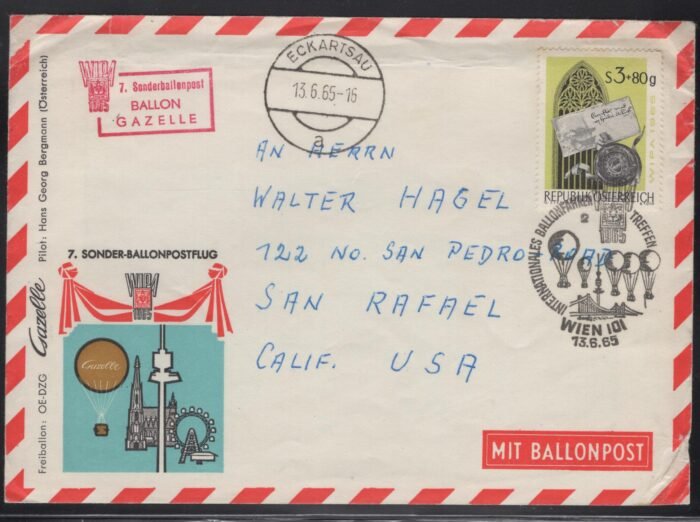 WIPA
1965
7. Sonderballonpost
BALLON
GAZELLE
ECKARTSAU
13.6.65-16
a
S3+80g
WIPA 1965
REPUBLIK ÖSTERREICH
AN HERRN
WALTER HAGEL
122 NO. SAN PEDRO-ROAD
SAN RAFAEL
CALIF. USA
INTERNATIONALES BALLONFAHRER TREFFEN
2
WIEN 101
13.6.65
Freiballon: OE-DZG Gazelle Pilot: Hans Georg Bergmann (Österreich)
7. SONDER-BALLONPOSTFLUG
WIPA
1965
Gazelle
MIT BALLONPOST